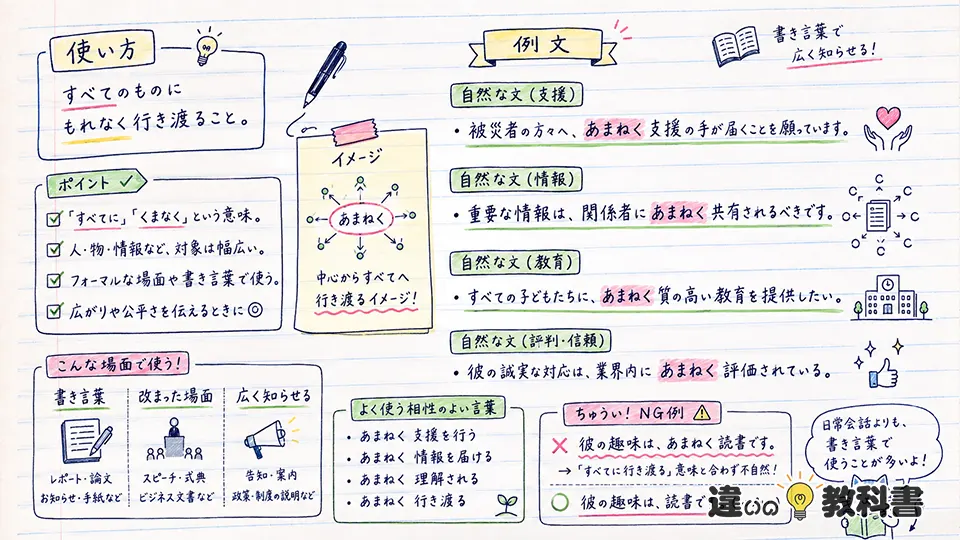 使い方
すべてのものに
もれなく行き渡ること。
ポイント
「すべてに」「くまなく」という意味。
人・物・情報など、対象は幅広い。
フォーマルな場面や書き言葉で使う。
広がりや公平さを伝えるときに◎
イメージ
あまねく
中心からすべてへ
行き渡るイメージ!
こんな場面で使う!
書き言葉
レポート・論文
お知らせ・手紙など
改まった場面
スピーチ・式典
ビジネス文書など
広く知らせる
告知・案内
政策・制度の説明など
例文
書き言葉で
広く知らせる!
自然な文(支援)
・被災者の方々へ、あまねく支援の手が届くことを願っています。
自然な文(情報)
・重要な情報は、関係者にあまねく共有されるべきです。
C C C C C C C C
自然な文(教育)
・すべての子どもたちに、あまねく質の高い教育を提供したい。
自然な文(評判・信頼)
・彼の誠実な対応は、業界内にあまねく評価されている。
よく使う相性のよい言葉
・あまねく 支援を行う
・あまねく 情報を届ける
・あまねく 理解される
・あまねく 行き渡る
ちゅうい! NG例
× 彼の趣味は、あまねく読書です。
→「すべてに行き渡る」意味と合わず不自然!
○ 彼の趣味は、読書で
日常会話よりも、
書き言葉で
使うことが多いよ!
違いの教科書